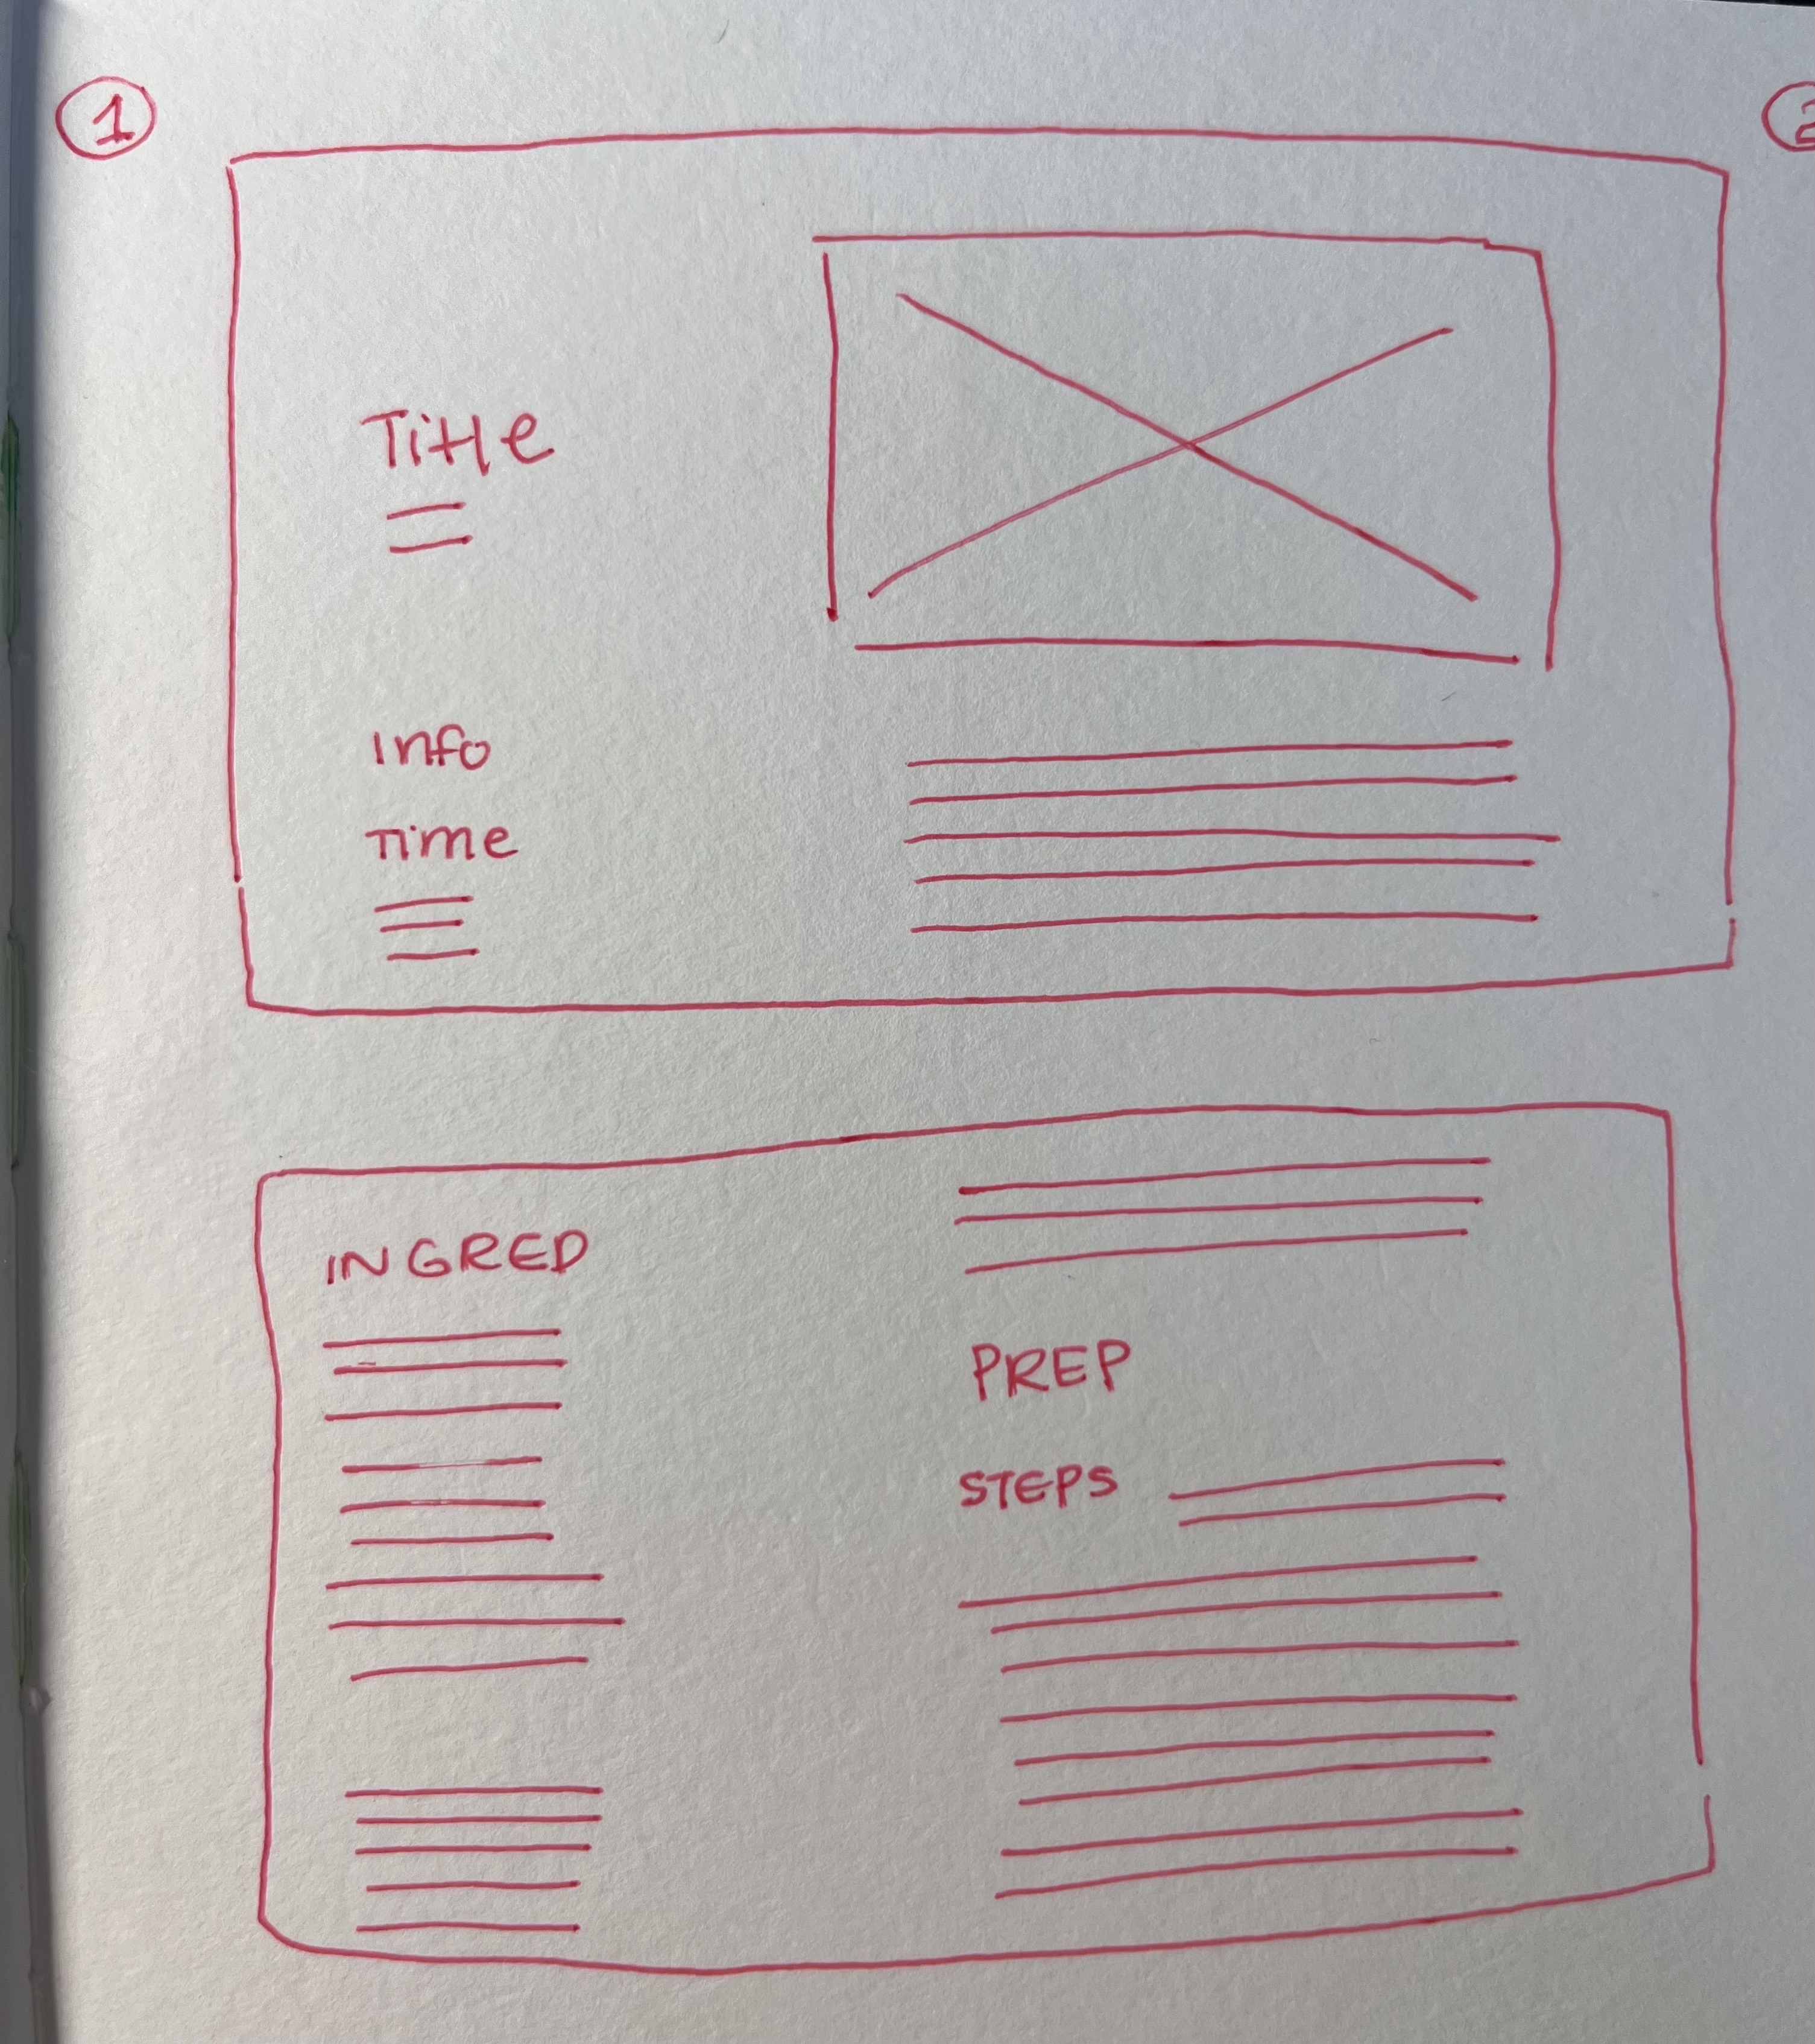 1
2
Title
Info
Time
INGRED
PREP
STEPS